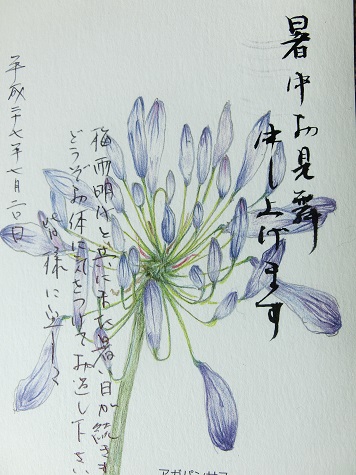 暑中お見舞
申し上げます
梅雨明けと共にまた暑い日が続きます
どうぞお体に気をつけてお過し下さい
皆様に宜しく
平成二十七年七月二日
アガパンサス